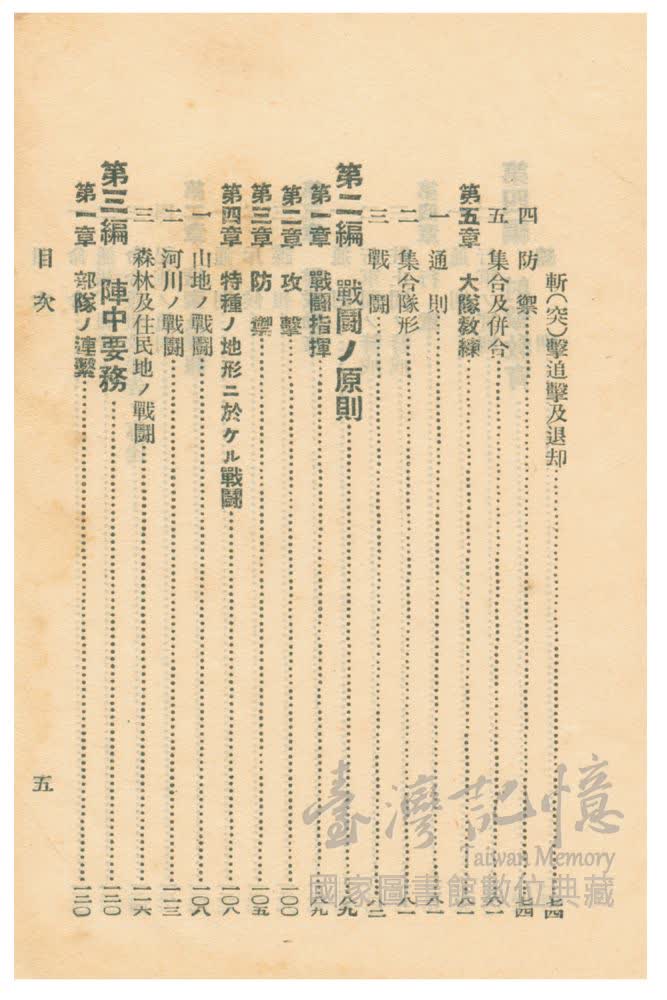 斬(突)擊追擊及退却……七四
四 防禦……七四
五 集合及併合……八一
第五章 大隊敎練……八一
一 通則……八一
二 集合隊形……八一
三 戰鬪……八二
第二編 戰鬪ノ原則……八九
第一章 戰鬪指揮……八九
第二章 攻擊……一〇〇
第三章 防禦……一〇五
第四章 特種ノ地形ニ於ケル戰鬪……一〇八
一 山地ノ戰鬪……一〇八
二 河川ノ戰鬪……一一三
三 森林及住民地ノ戰鬪……一一六
第三編 陣中要務……一二〇
第一章 部隊ノ連繫……一二〇
目次
五
臺灣記憶
Taiwan Memory
國家圖書館數位典藏